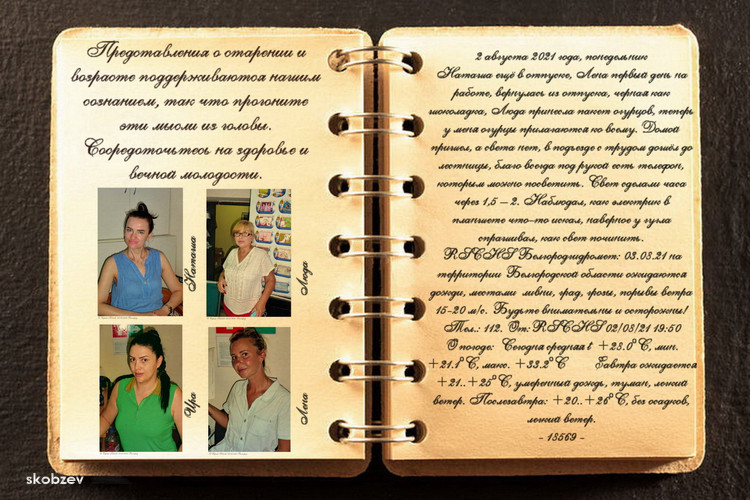 Представления о старении и
возрасте поддерживаются нашим
сознанием, так что прогоните
эти мысли из головы.
Сосредоточьтесь на здоровье и
вечной молодости.
Наташа
Люда
Ира
Лена
2 августа 2021 года, понедельник
Наташа ещё в отпуске, Лена первый день на
работе, вернулась из отпуска, черная как
шоколадка, Люда принесла пакет огурцов, теперь
у меня огурцы прилагаются ко всему. Домой
пришел, а света нет, в подъезде с трудом дошёл до
лестницы, благо всегда под рукой есть телефон,
которым можно посветить. Свет сделали часа
через 1,5 – 2. Наблюдал, как электрик в
планшете что-то искал, наверное у гугла
спрашивал, как свет починить.
RSCHS Белгородгидромет: 03.08.21 на
территории Белгородской области ожидаются
дожди, местами ливни, град, грозы, порывы ветра
15-20 м/с. Будьте внимательны и осторожны!
Тел.: 112. От: RSCHS 02/08/21 19:50
О погоде: Сегодня средняя t +23.0°С, мин.
+21.1°С, макс. +33.2°С Завтра ожидается
+21..+25°С, умеренный дождь, туман, легкий
ветер. Послезавтра: +20..+26°С, без осадков,
легкий ветер.
- 13569 -
skobzev